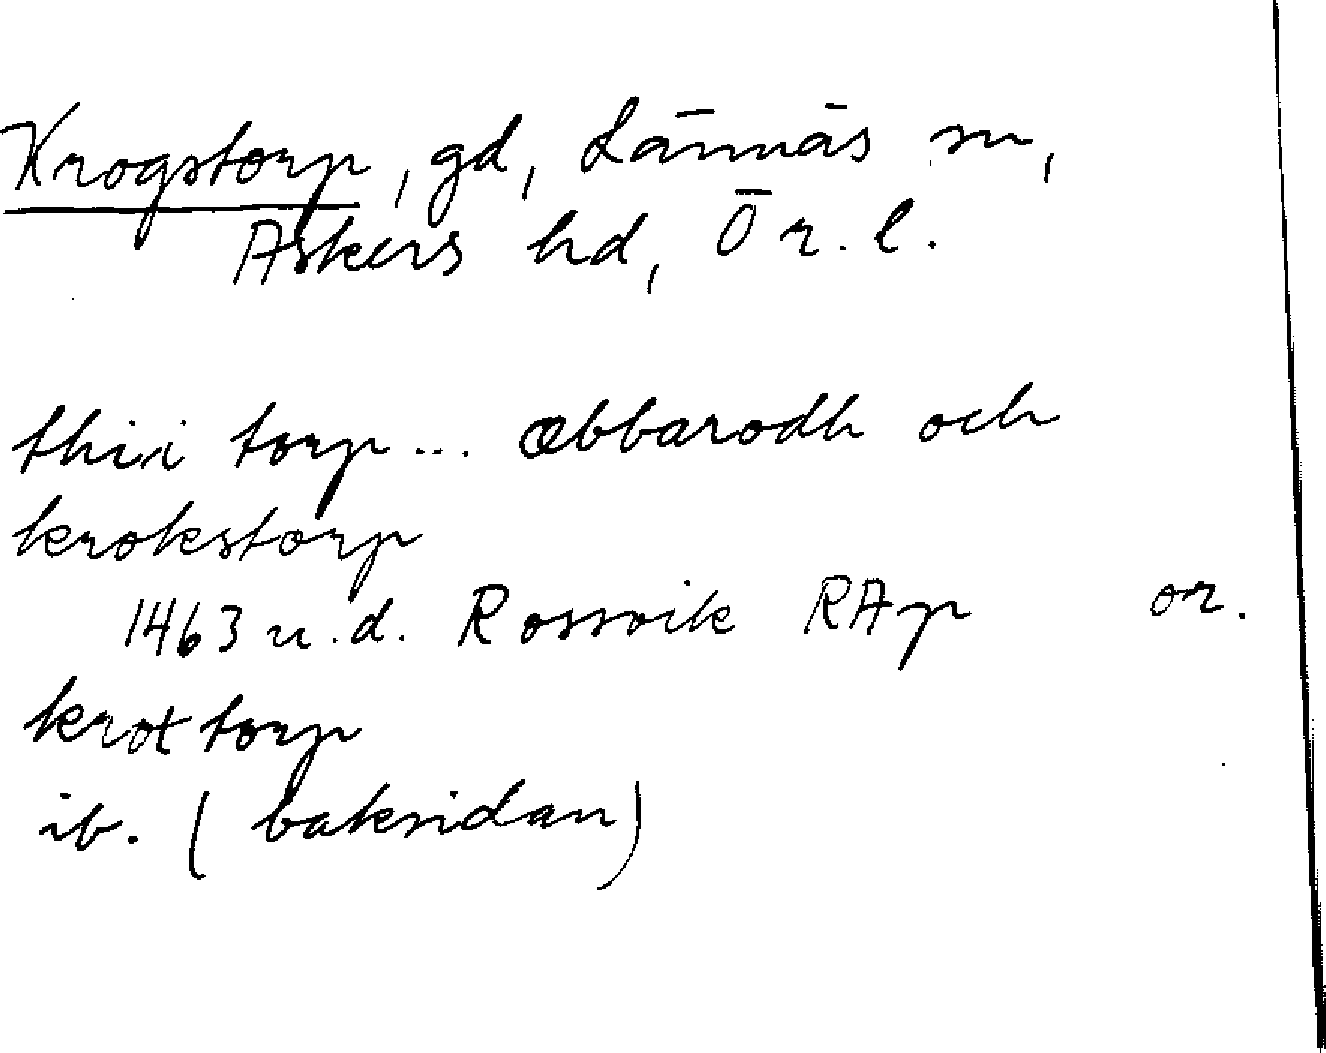 Krogstorp, gd, Lännäs sn,
Askers hd, Ör. l.
thiri torp... æbbarodh och
krokstorp
1463 u.d. Rossvik RAp or.
krottorp
ib. (baksidan)